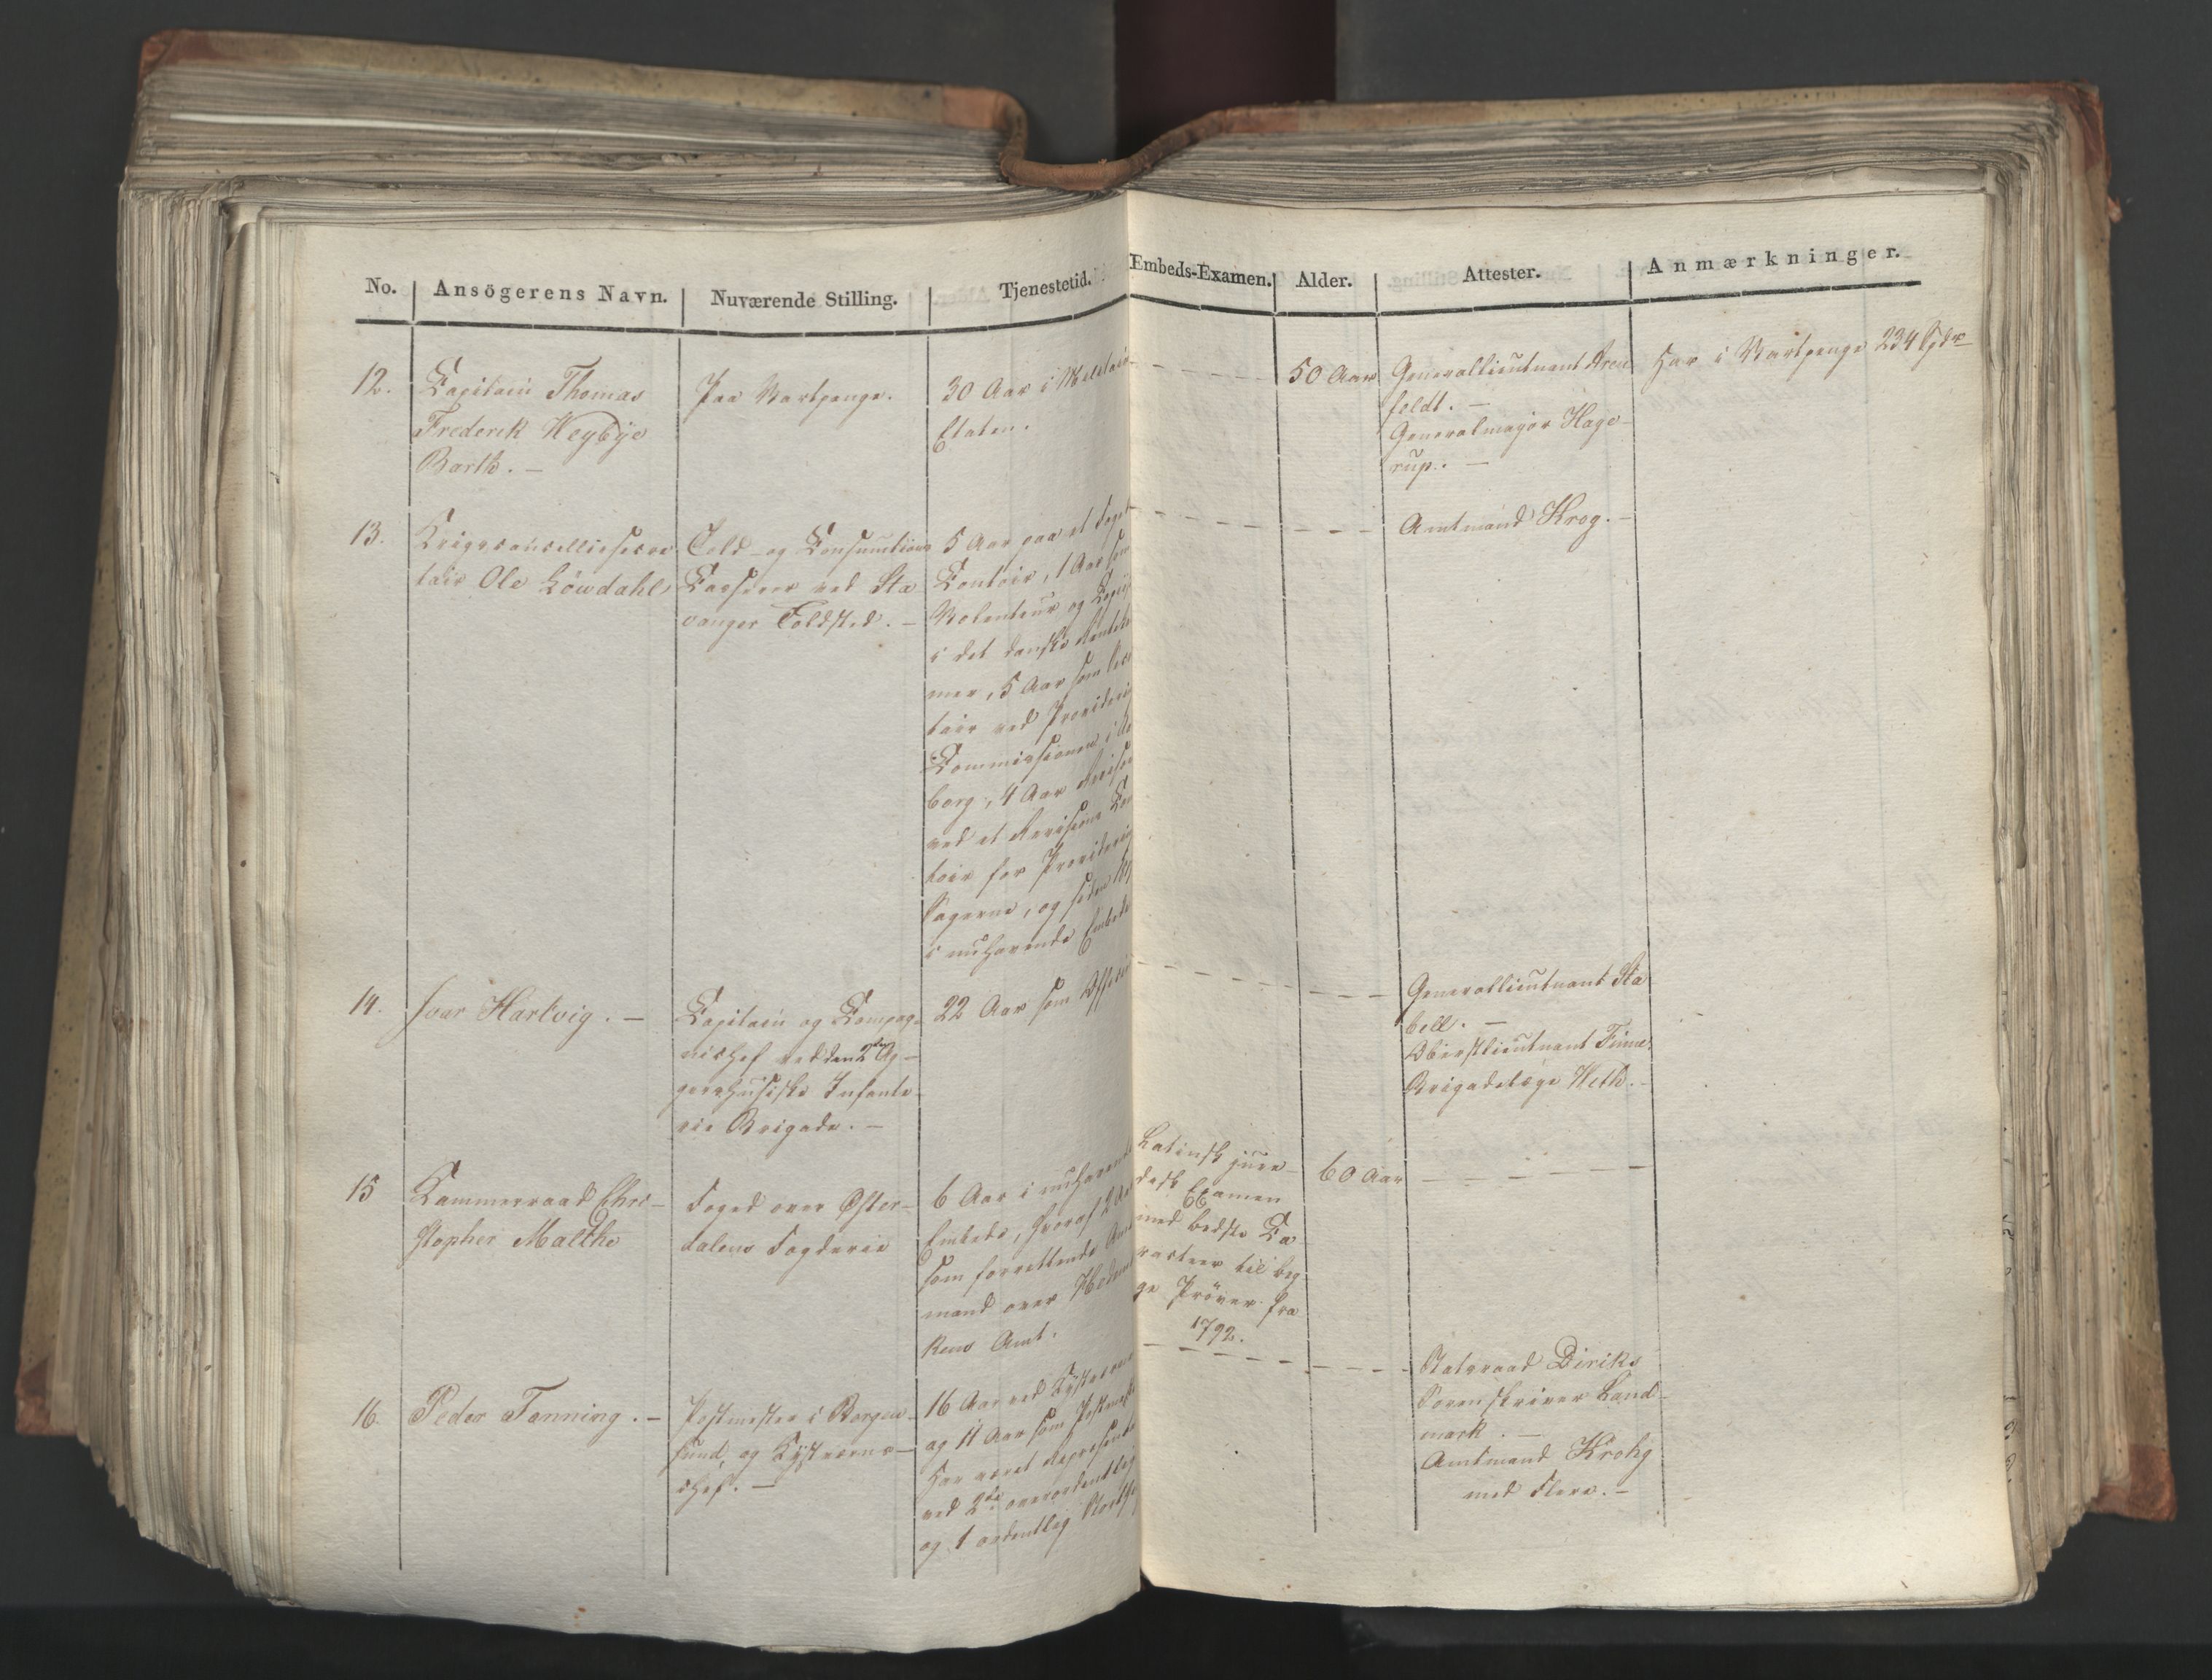 No. Ansögerens Navn. Nuværende Stilling. Tjenestetid. Embeds-Examen. Alder. Attester. Anmærkninger.
12.
Capitain Thomas
Frederik Weybye
Barth. –
Paa Vartpenge.
30 Aar i Militair
Etaten.
50 Aar
Generallieutnant Aren
feldt. –
Generalmajor Hage-
rup. –
Har i Vartpenge 234 Spdr
13.
Krigscancelliesecre
tair Ole Löwdahl
Told- og Consumtions
Casserer ved Sta
vanger Toldsted. –
5 Aar paa et Foged
Contoir, 1 Aar som
Volonteur og Copiist
i det danske Rentekam
mer, 5 Aar som Secre
tair ved Providerings
Commissionen i
borg, 4 Aar Revisor
ved et Revisions Con
toir for Providerings
Sagerne, og siden
i nuhavende Embede
Amtmand Krog. –
14.
Ivar Hartvig. –
Capitain og Compag-
niechef ved den 2den Ag-
gershusiske Infante-
rie Brigade. –
22 Aar som Officier
Generallieutnant Sta
bell. –
Oberstlieutnant Finne
Brigadelæge Heth. –
15
Kammerraad Chri-
stopher Malthe
Foged over Öster-
dalens Fogderie
6 Aar i nuhavende
Embede, hvoraf 2 Aar
som forrettende Amt
mand over Hedema
kens Amt.
Latinsk juri-
disk Examen
med bedste Ca
racteer til beg-
ge Pröver fra
1792.
60 Aar
16.
Peder Fanning. –
Postmester i Borgen-
sund, og Kystværns-
chef. –
16 Aar ved Kystværnet
og 11 Aar som Postmester
Har været Repræsentant
ved 2de overordentlig
og 1 ordentlig Storthing
Statsraad Diriks
Sorenskriver Land-
mark. –
Amtmand Krohg
med Flere. –